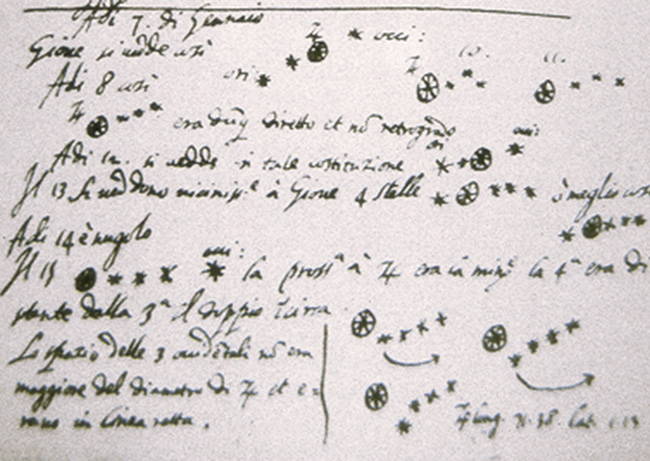 Adi 7. di Gennaio
Gione si vedde così
♃ occi:
ori
Adi 8 così
♃ 10. 11.
♃
era dūq diretto et nō retrogrado
Adi 12. si vedde in tale costituzione
ori occi:
Il 13 si veddono à Gione 4 stelle
ò meglio così
Adi 14 è nugolo
Il 15
occi:
la prossª à ♃ era la minª la 4ª era di
stante dalla 3ª il doppio circa
Lo spazio delle 3 occidētali nō era
maggiore del diametro di ♃ et e=
rano in linea retta.
♃ long. 71.38. lat. 1.13